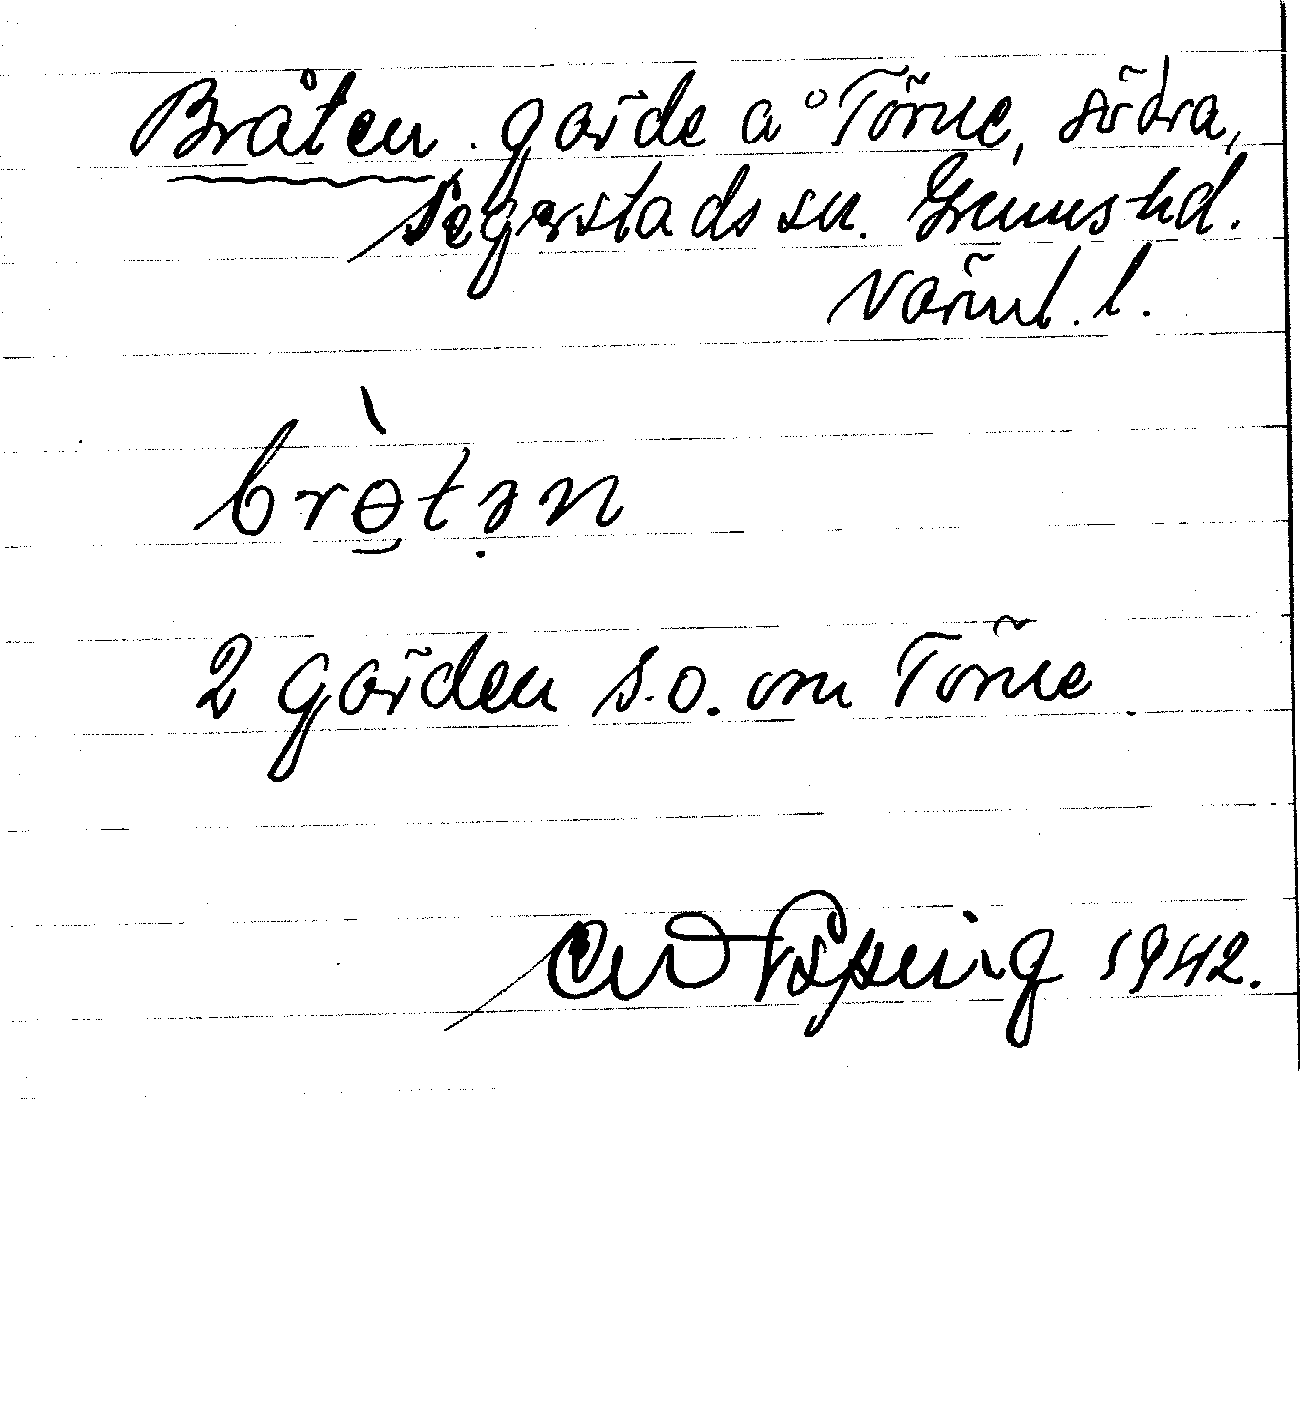 Bråten, gärde å Törne, södra,
Segerstads sn. Grums hd.
Värml. l.
brə̀tən
2 gärden s.o. om Törne.
1942.